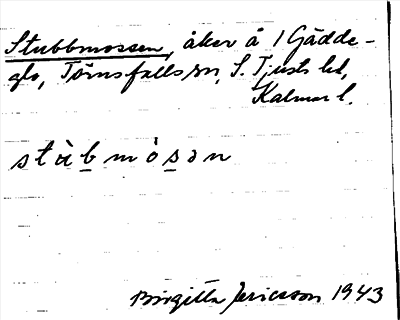 Stubbmossen, åker å 1 Gädde-
glo, Törnsfalls sn, S. Tjusts hd,
Kalmar l.
stàbmòsən
Birgitta Jericsson 1943